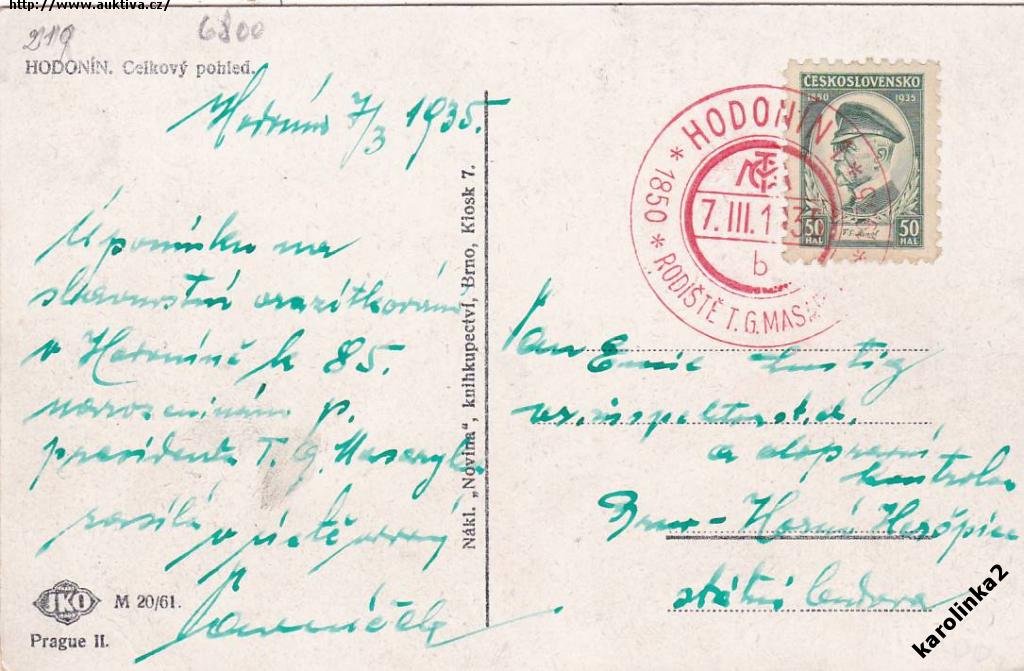 http://www.auktiva.cz/
219
6800
HODONÍN. Celkový pohled.
7/3 1935.
Upomínku na
slavnostní orazítkování
v Hodoníně k 85.
narozeninám p.
presidenta T. G. Masaryka
zasílá
JKO
M 20/61.
Prague II.
Nákl. „Novina", knihkupectví, Brno, Kiosk 7.
ČESKOSLOVENSKO
1850 1935
50 HAL
50 HAL
* HODONÍN *
* 1850 * RODIŠTĚ T.G.MASA
7. III. 1 35
b
Pan Emil Lustig
vr. inspektor st. d.
a dopravní
kontrolor
Brno - Horní Heršpice
státní budova
karolinka2